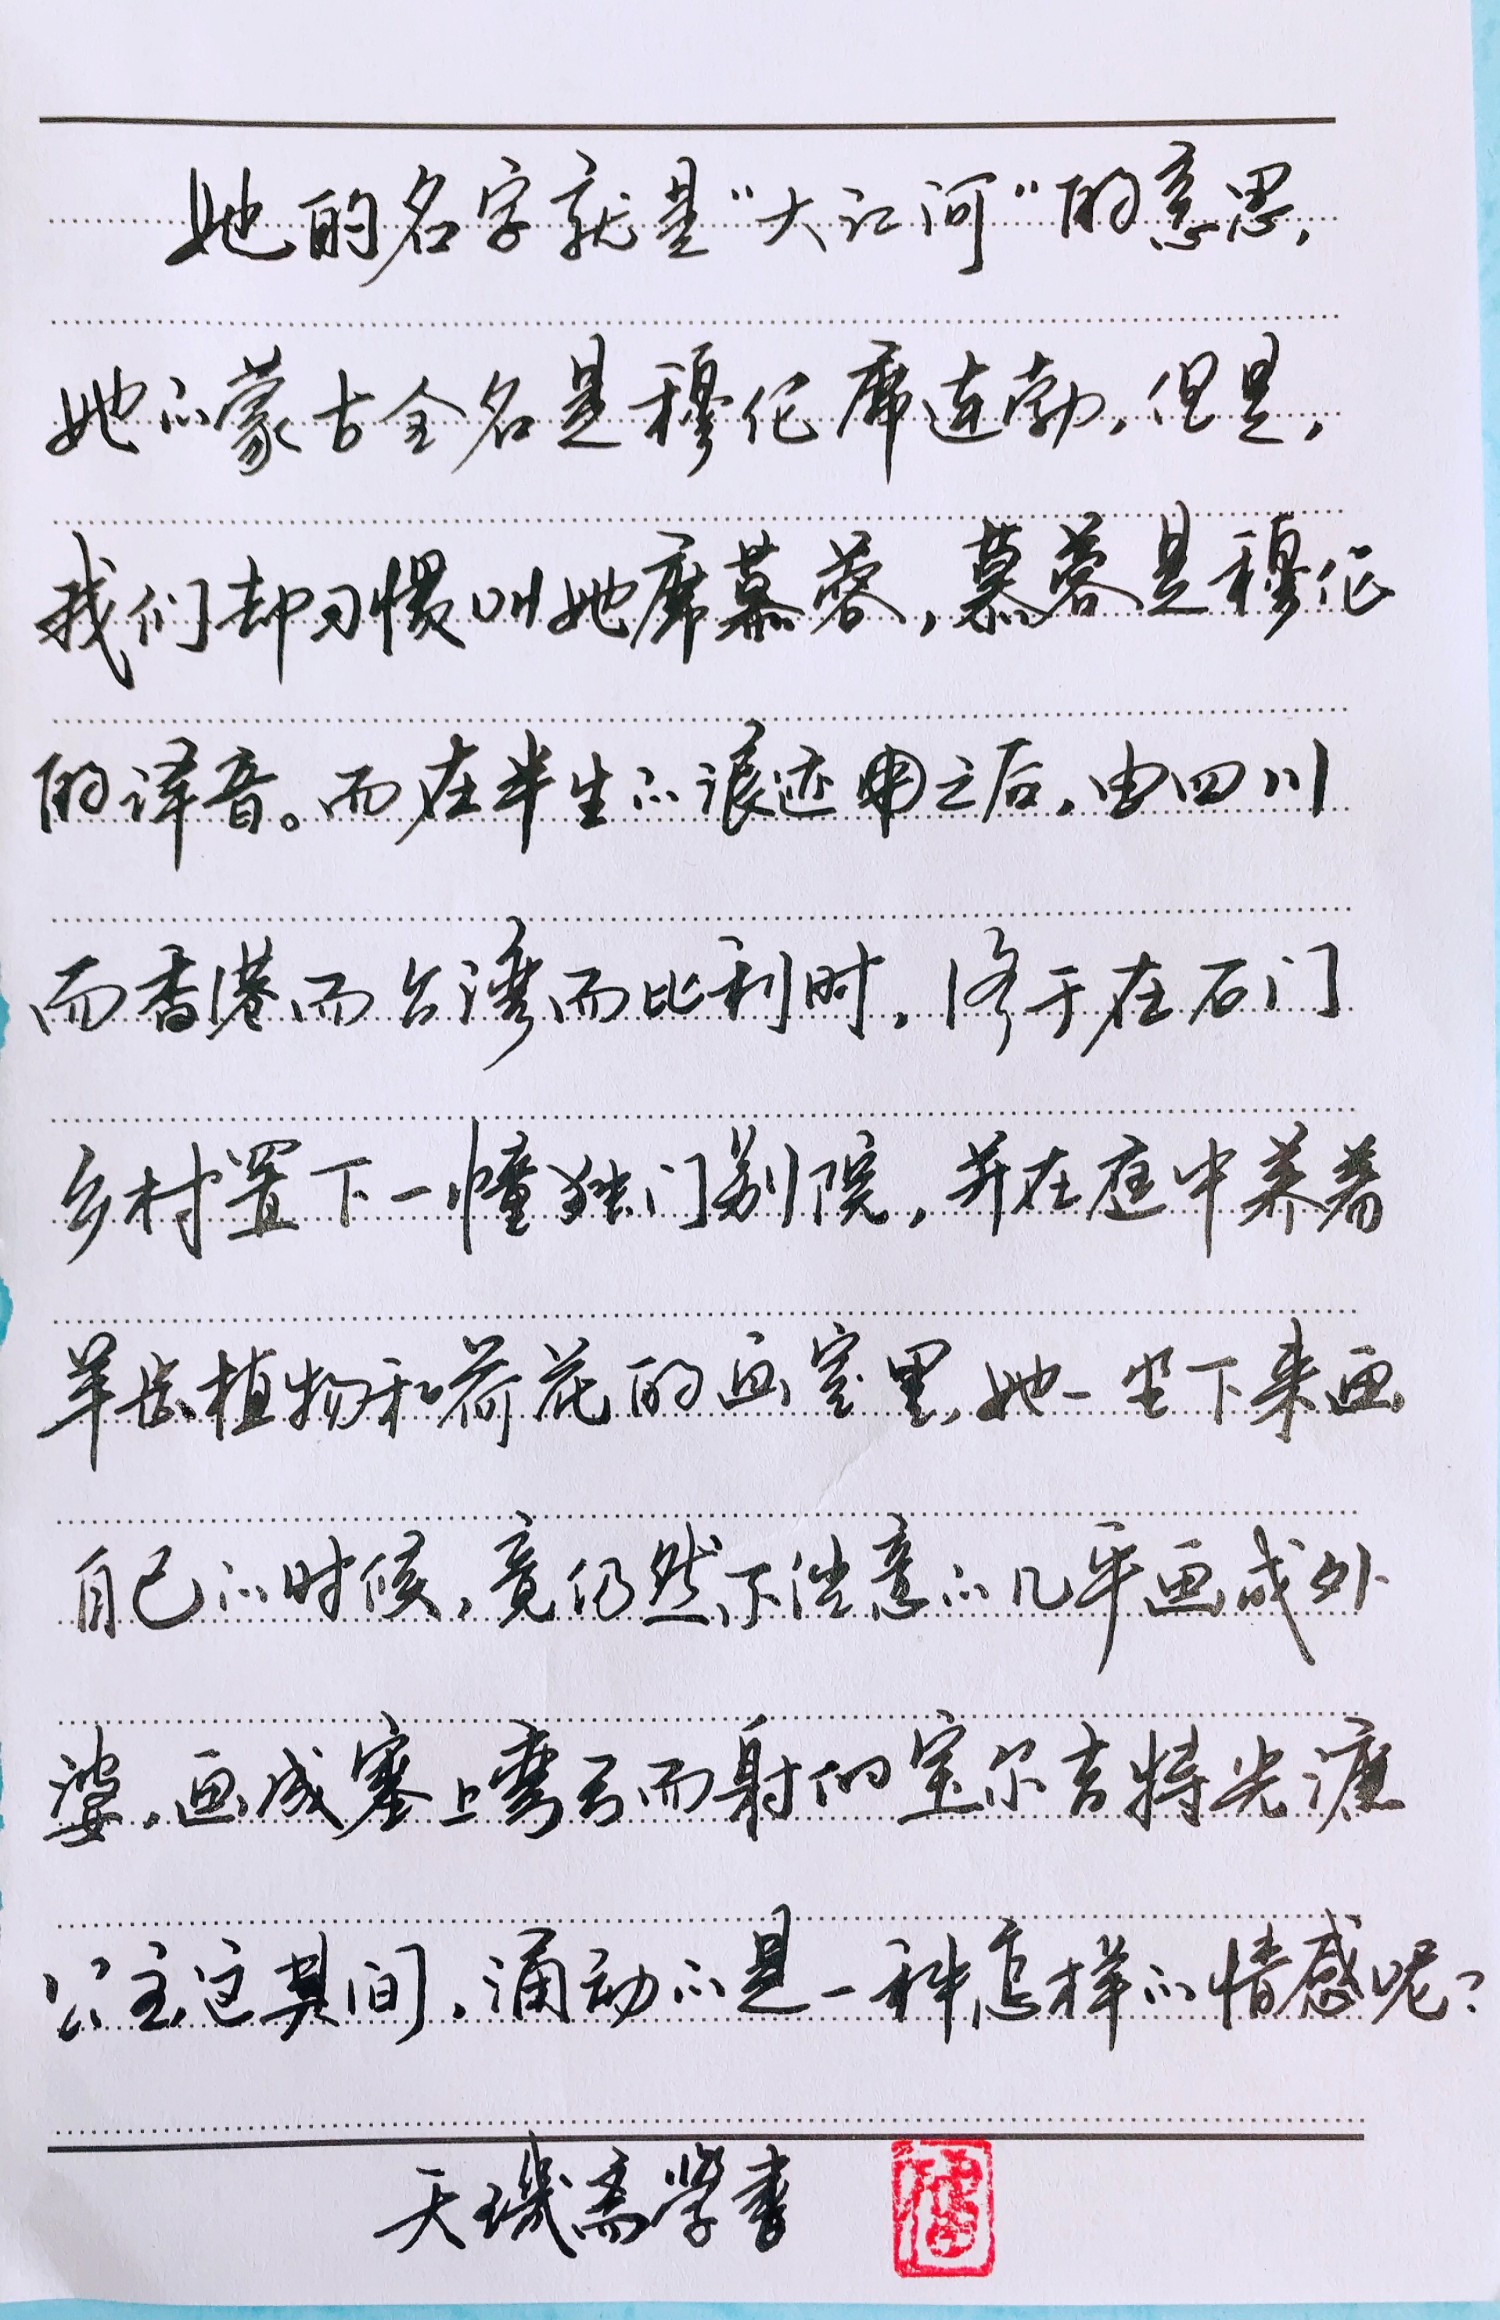 她的名字就是“大江河”的意思，
她的蒙古全名是穆伦席连勃，但是，
我们却习惯叫她席慕蓉，慕蓉是穆伦
的译音。而在半生的浪迹之后，由四川
而香港而台湾而比利时，终于在石门
乡村置下一幢独门别院，并在庭中养着
羊齿植物和荷花的画室里，她一坐下来画
自己的时候，竟仍然不经意的几乎画成外
婆，画成塞上弯弓而射的宝尔吉特光濂
公主，这其间，涌动的是一种怎样的情感呢？
天玑斋学书